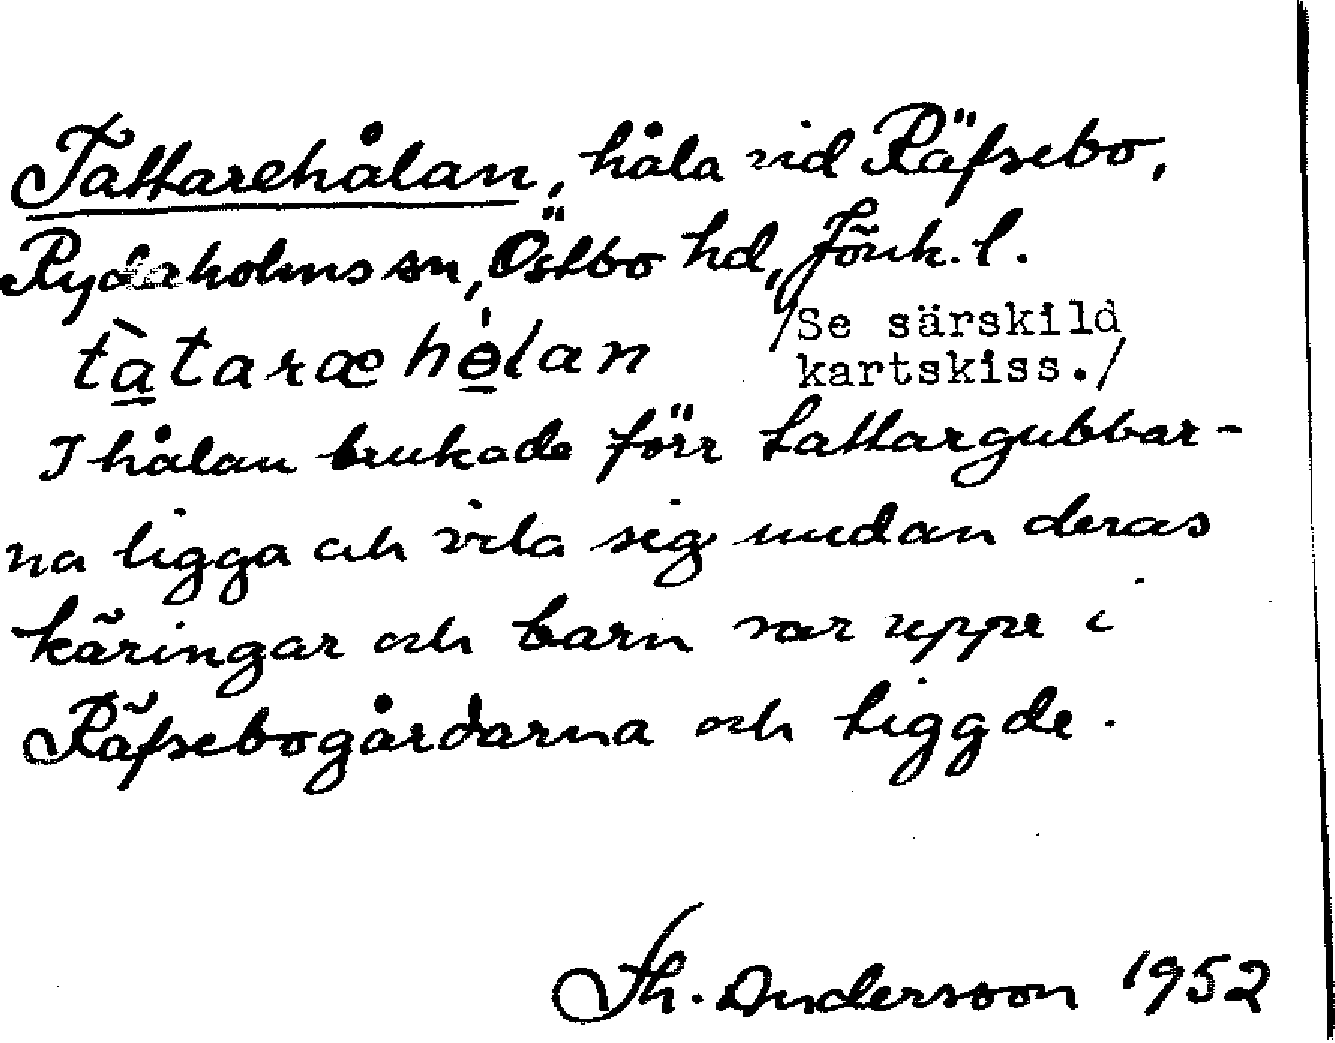 Tattarehålan, håla vid Räfsebo,
Rydaholms sn, Östbo hd, Jönk. l.
tàtaræhó̱lan
/Se särskild
kartskiss./
I hålan brukade förr tattargubbar-
na ligga och vila sig medan deras
käringar och barn var uppe i
Räfsebogårdarna och tiggde.
Th. Andersson 1952